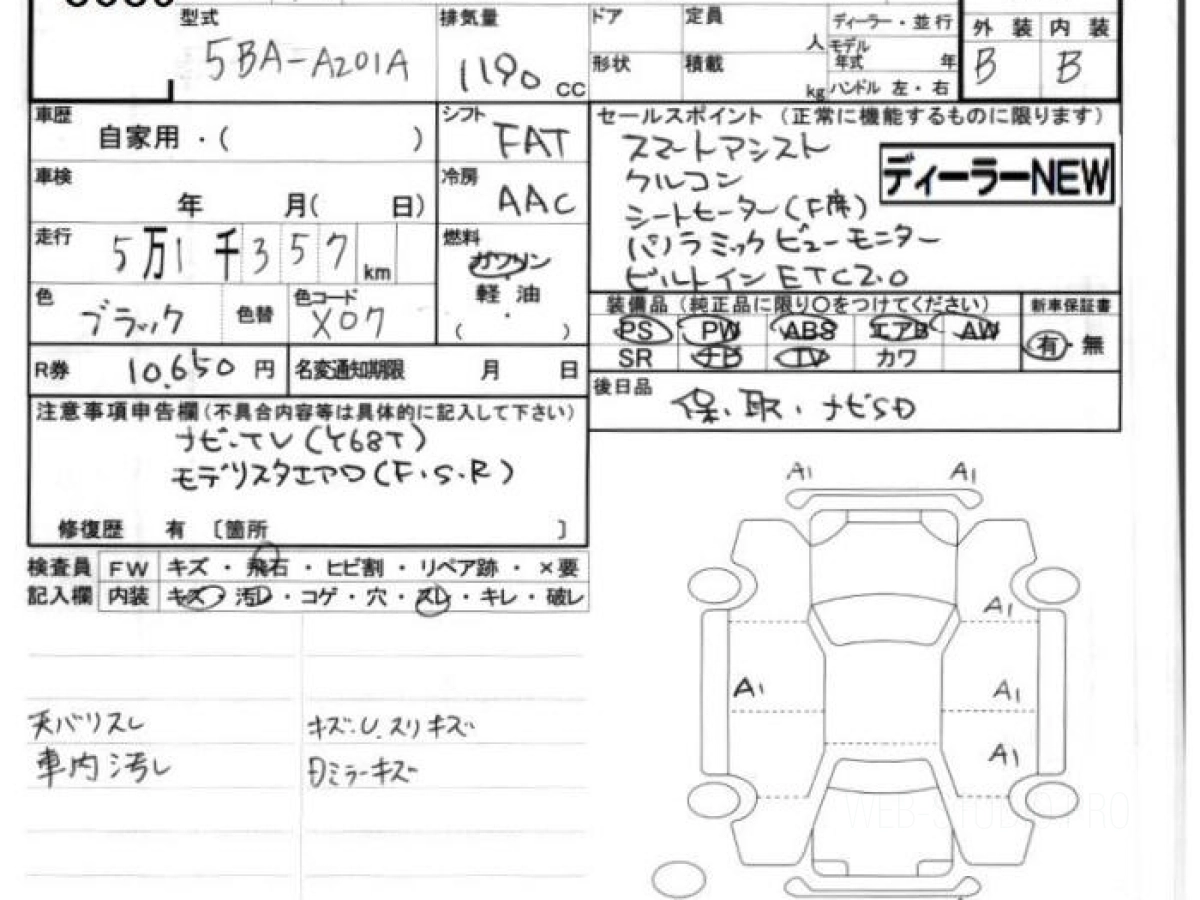 型式 排気量 ドア 定員 ディーラー・並行 外装 内装
5BA-A201A 1190 cc 人 モデル年式 年 B B
形状 積載 kg ハンドル 左・右
車歴 自家用・( ) シフト FAT セールスポイント (正常に機能するものに限ります)
スマートアシスト
車検 年 月( 日) 冷房 AAC クルコン ディーラーNEW
シートヒーター(F席)
走行 5万1千357km 燃料 ガソリン パノラミックビューモニター
軽油 ビルトインETC2.0
( )
色 ブラック 色替 色コード X07 装備品 (純正品に限り○をつけてください) 新車保証書
PS PW ABS エアB AW 有・無
R券 10,650円 名変通知期限 月 日 SR ナビ TV カワ
注意事項申告欄(不具合内容等は具体的に記入して下さい) 後日品 保・取・ナビSD
ナビ・TV(Y68T)
モデリスタエアロ(F.S.R)
修復歴 有 〔箇所 〕
検査員 FW キズ・飛石・ヒビ割・リペア跡・×要
記入欄 内装 キズ・汚レ・コゲ・穴・スレ・キレ・破レ
天バリスレ キズ・U.スリキズ
車内汚レ ミラーキズ
A1 A1
A1
A1 A1
A1
WEB-STUDIO.PRO